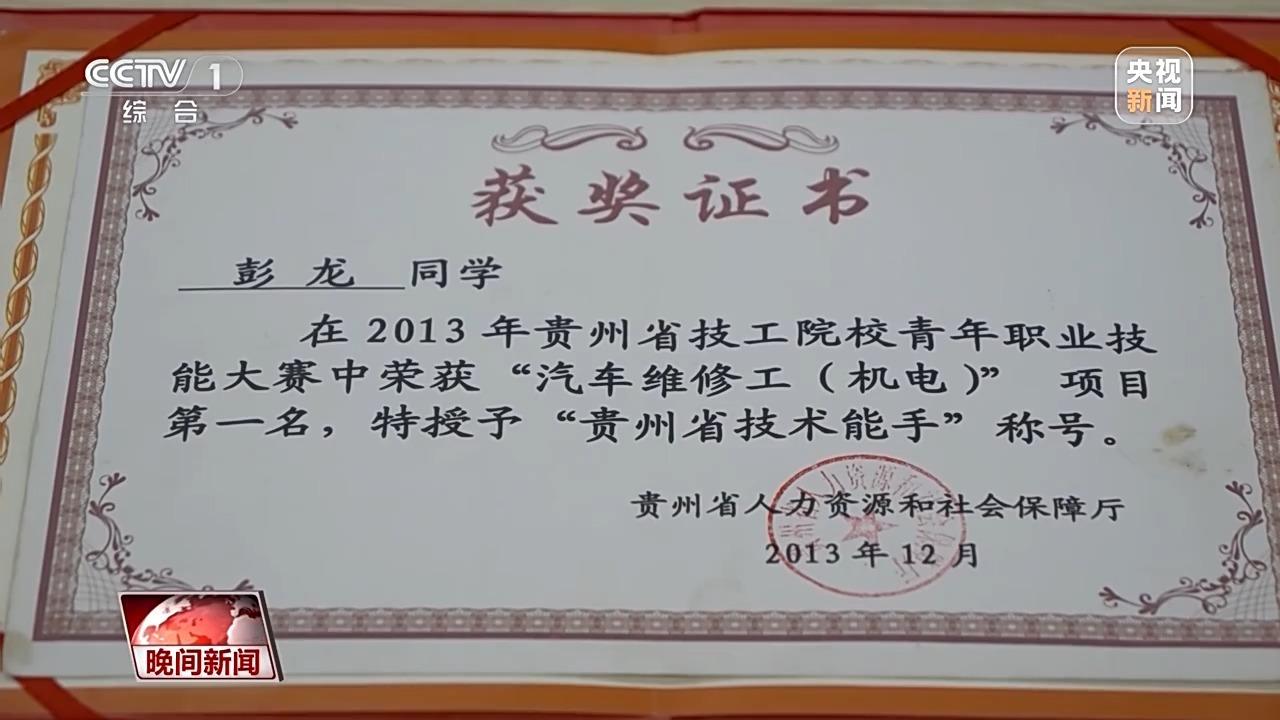 CCTV 1
综合
央视
新闻
获奖证书
彭龙 同学
在2013年贵州省技工院校青年职业技
能大赛中荣获“汽车维修工（机电）” 项目
第一名，特授予“贵州省技术能手”称号。
贵州省人力资源和社会保障厅
2013年12月
晚间新闻